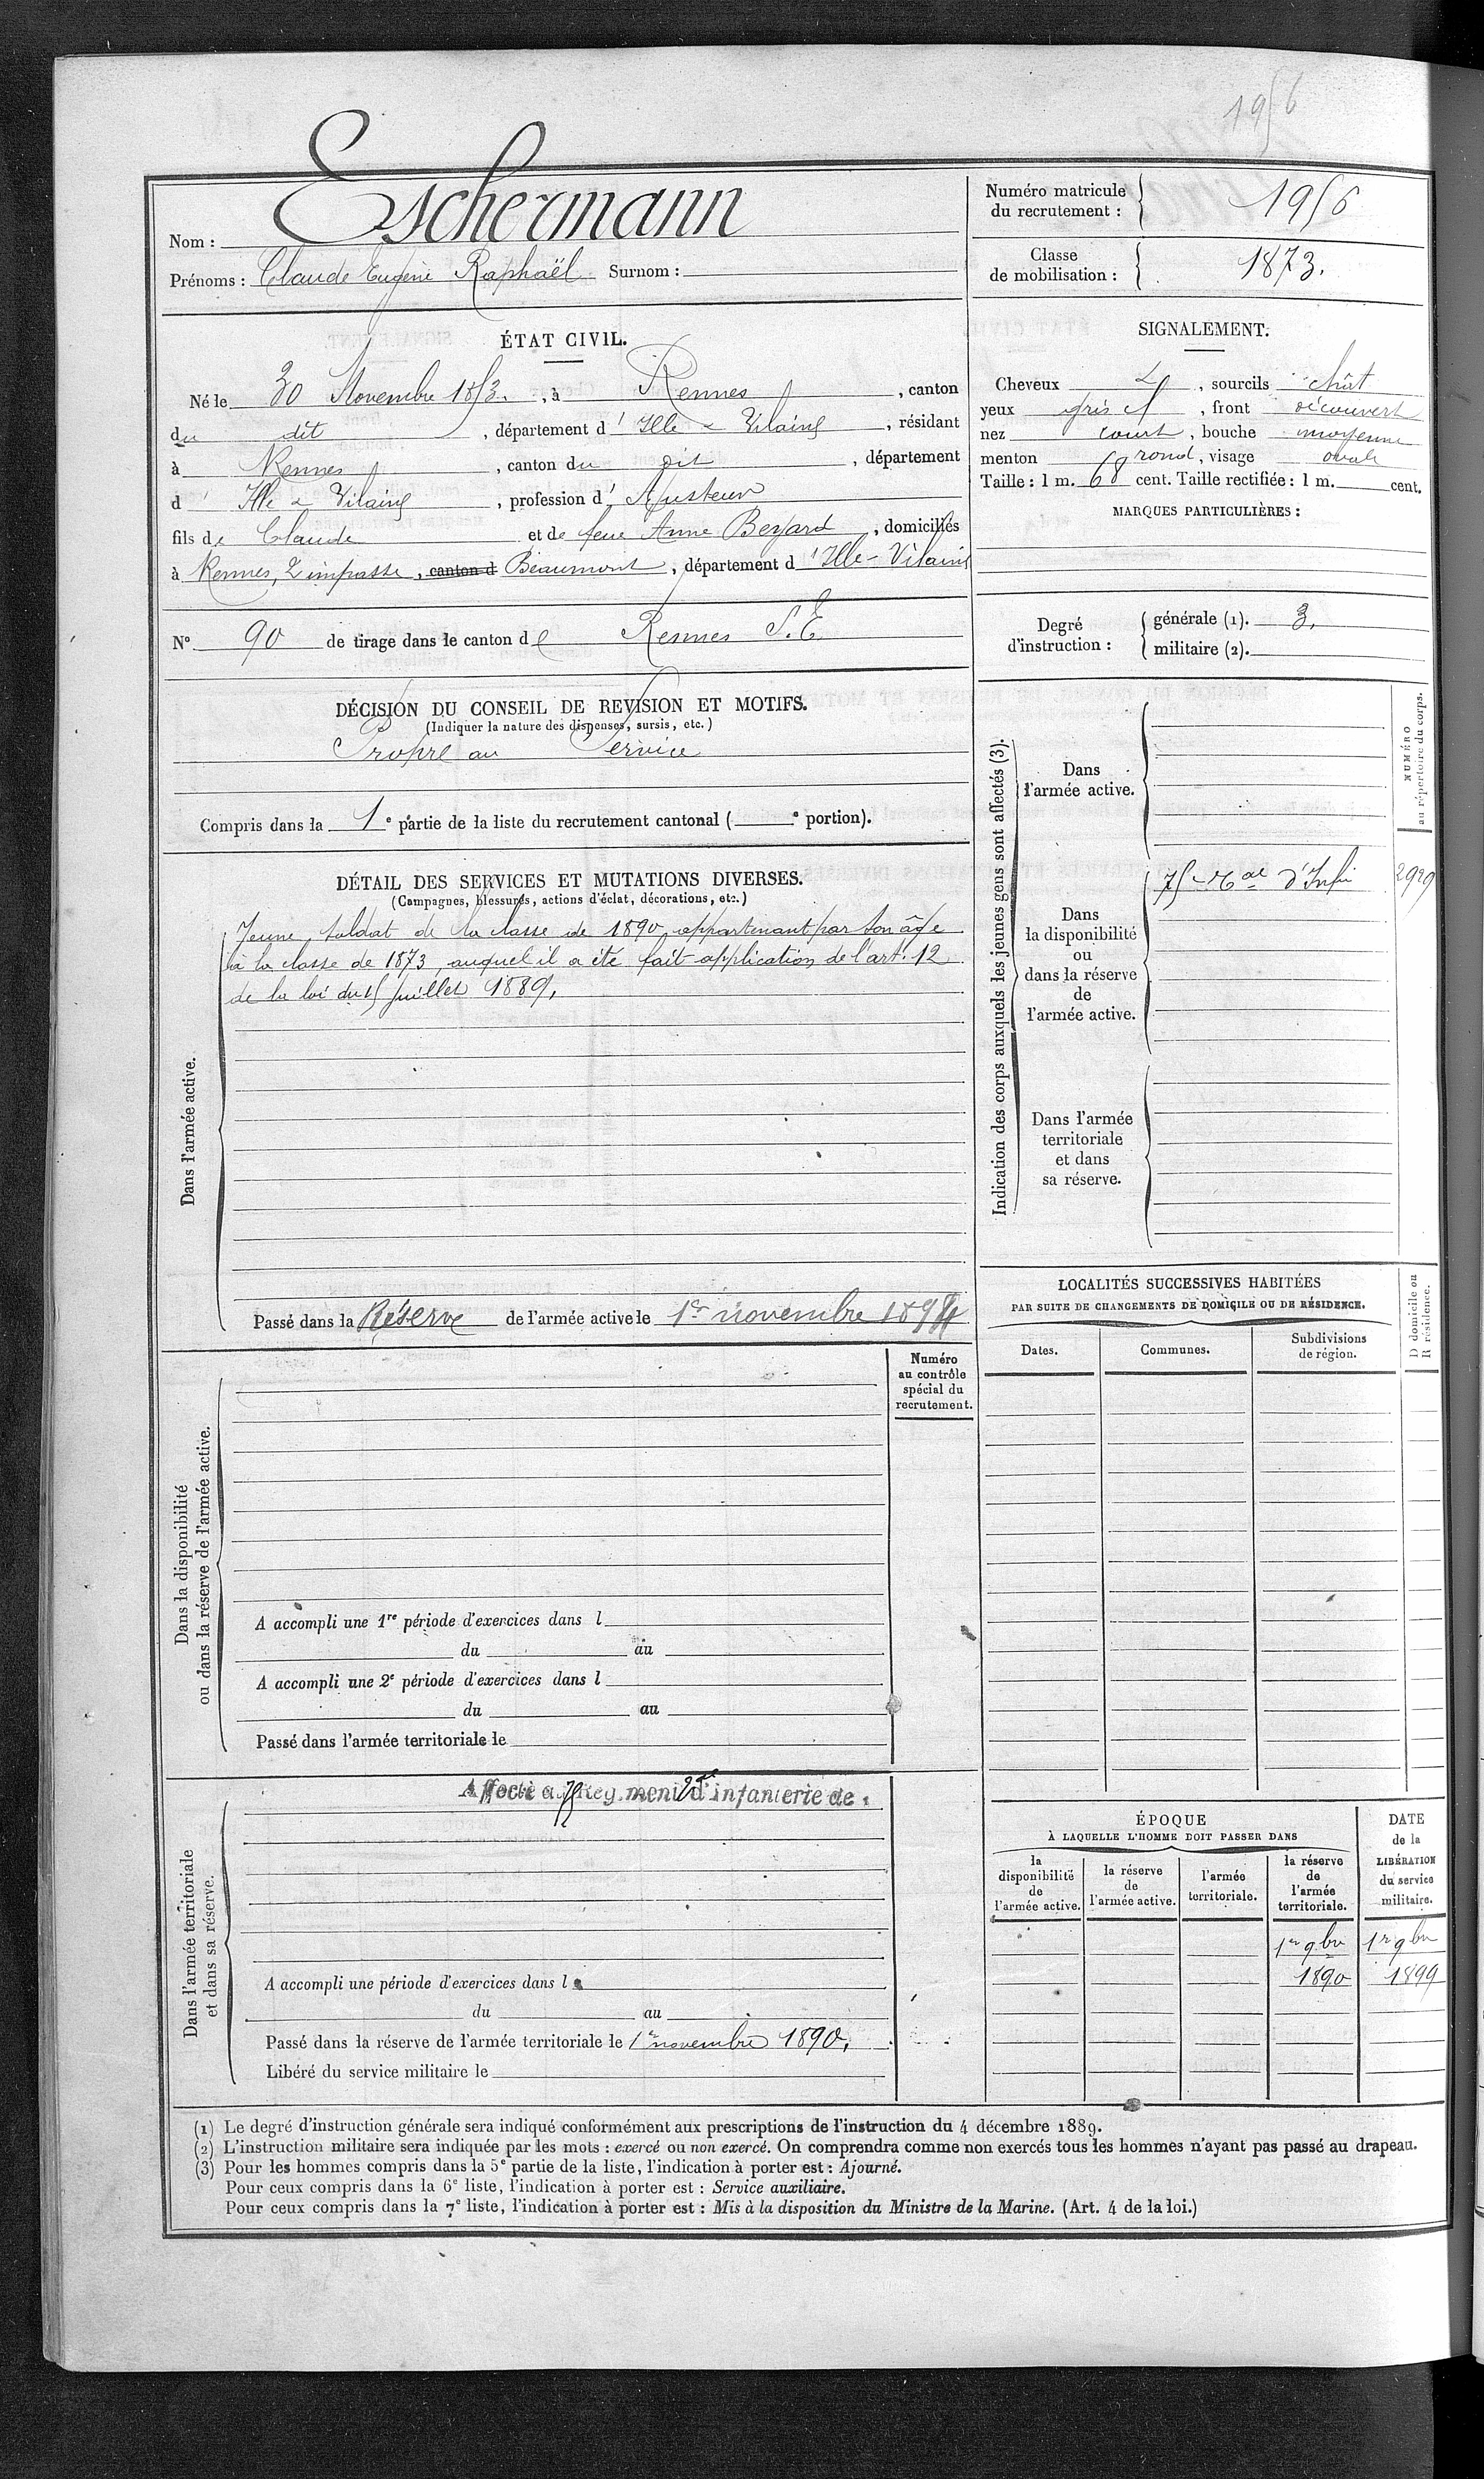 1956
Nom : Eschermann
Prénoms : Claude Eugène Raphaël Surnom :
Numéro matricule du recrutement : 1956
Classe de mobilisation : 1873.
ÉTAT CIVIL.
Né le 30 Novembre 1853. , à Rennes , canton
du dit , département d'Ille & Vilaine , résidant
à Rennes , canton du dit , département
d'Ille & Vilaine , profession d'Ajusteur
fils de Claude et de feue Anne Beyard , domiciliés
à Rennes, 2 impasse , canton d Beaumont , département d'Ille-Vilaine
N° 90 de tirage dans le canton de Rennes S.E
SIGNALEMENT.
Cheveux , sourcils chât
yeux gris , front découvert
nez court , bouche moyenne
menton rond , visage ovale
Taille : 1 m. 68 cent. Taille rectifiée : 1 m. cent.
MARQUES PARTICULIÈRES :
Degré d'instruction :
générale (1). 3.
militaire (2).
DÉCISION DU CONSEIL DE REVISION ET MOTIFS.
(Indiquer la nature des dispenses, sursis, etc.)
Propre au Service
Compris dans la 1e partie de la liste du recrutement cantonal ( e portion).
DÉTAIL DES SERVICES ET MUTATIONS DIVERSES.
(Campagnes, blessures, actions d'éclat, décorations, etc.)
Dans l'armée active.
Jeune soldat de la classe de 1890 appartenant par son âge
à la classe de 1873, auquel il a été fait application de l'art. 12
de la loi du 15 juillet 1889.
Passé dans la Réserve de l'armée active le 1er novembre 1894
Indication des corps auxquels les jeunes gens sont affectés (3).
NUMÉRO
au répertoire du corps.
Dans
l'armée active.
75e d'Infie 2929
Dans
la disponibilité
ou
dans la réserve
de
l'armée active.
Dans l'armée
territoriale
et dans
sa réserve.
LOCALITÉS SUCCESSIVES HABITÉES
PAR SUITE DE CHANGEMENTS DE DOMICILE OU DE RÉSIDENCE.
Dates.
Communes.
Subdivisions
de région.
D domicile ou
R résidence.
Numéro
au contrôle
spécial du
recrutement.
Dans la disponibilité
ou dans la réserve de l'armée active.
A accompli une 1re période d'exercices dans l
du au
A accompli une 2e période d'exercices dans l
du au
Passé dans l'armée territoriale le
Dans l'armée territoriale
et dans sa réserve.
Affecté au 75 Régiment d'infanterie de
A accompli une période d'exercices dans l
du au
Passé dans la réserve de l'armée territoriale le 1er novembre 1890.
Libéré du service militaire le
ÉPOQUE
À LAQUELLE L'HOMME DOIT PASSER DANS
la
disponibilité
de
l'armée active.
la réserve
de
l'armée active.
l'armée
territoriale.
la réserve
de
l'armée
territoriale.
DATE
de la
LIBÉRATION
du service
militaire.
1er 9bre 1er 9bre
1890 1899
(1) Le degré d'instruction générale sera indiqué conformément aux prescriptions de l'instruction du 4 décembre 1889.
(2) L'instruction militaire sera indiquée par les mots : exercé ou non exercé. On comprendra comme non exercés tous les hommes n'ayant pas passé au drapeau.
(3) Pour les hommes compris dans la 5e partie de la liste, l'indication à porter est : Ajourné.
Pour ceux compris dans la 6e liste, l'indication à porter est : Service auxiliaire.
Pour ceux compris dans la 7e liste, l'indication à porter est : Mis à la disposition du Ministre de la Marine. (Art. 4 de la loi.)